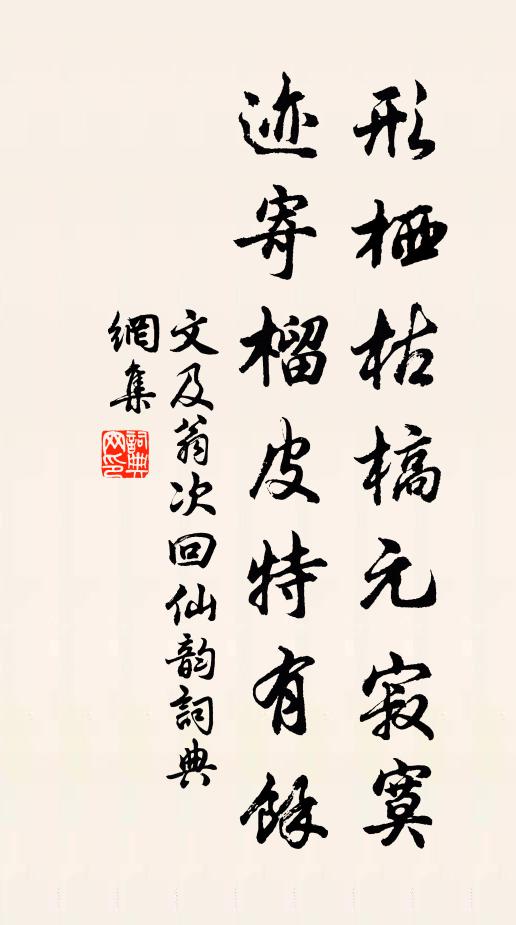 形栖枯槁元寂寞
迹寄榴皮特有餘
文及翁次回仙韵詞典
網集
詞典
网印